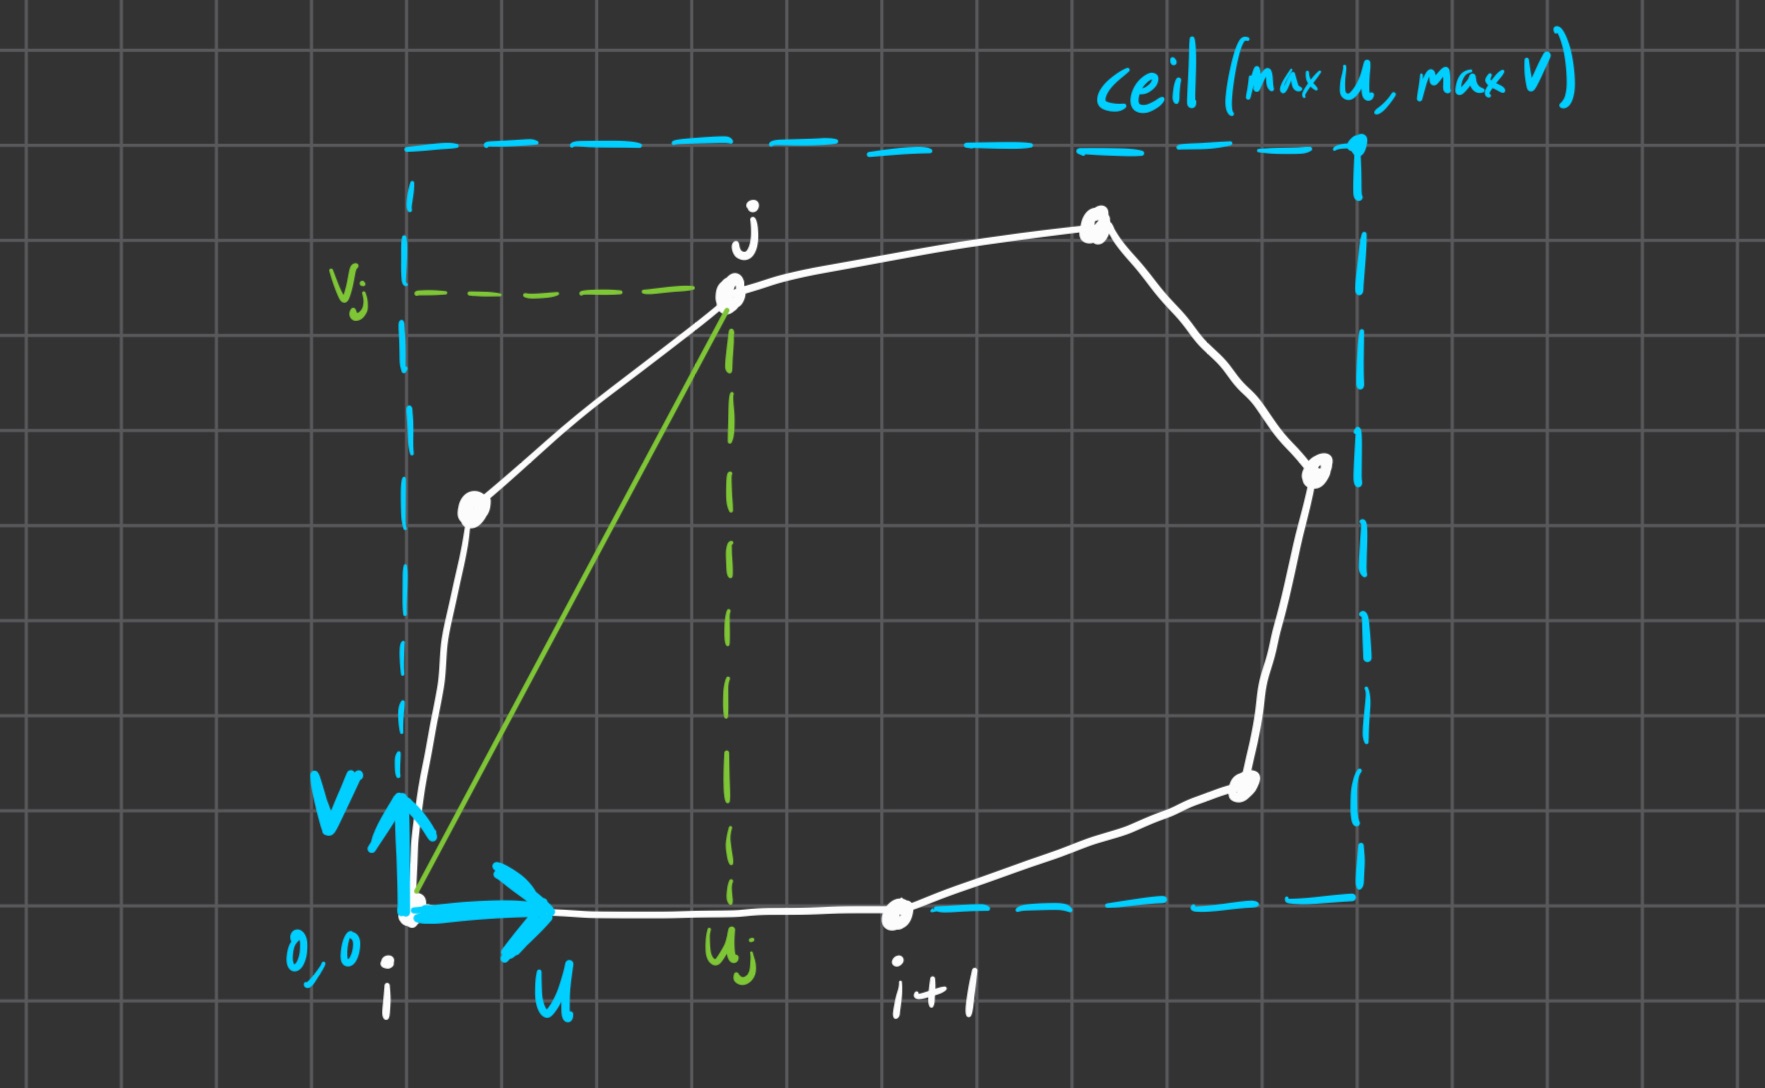 ceil (max u, max v)
j
vj
v
0,0
i
u
uj
i+1